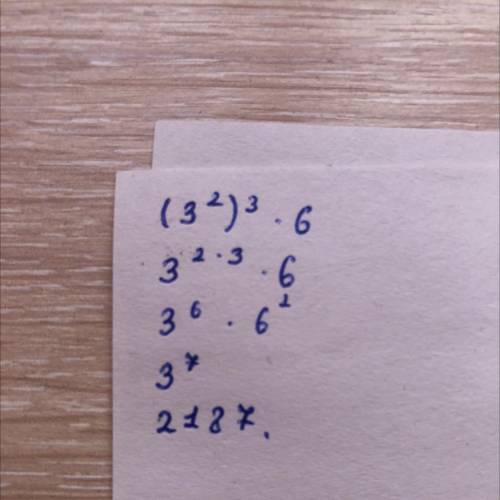 (3²)³ · 6
3²·³ · 6
3⁶ · 6¹
3⁷
2187.